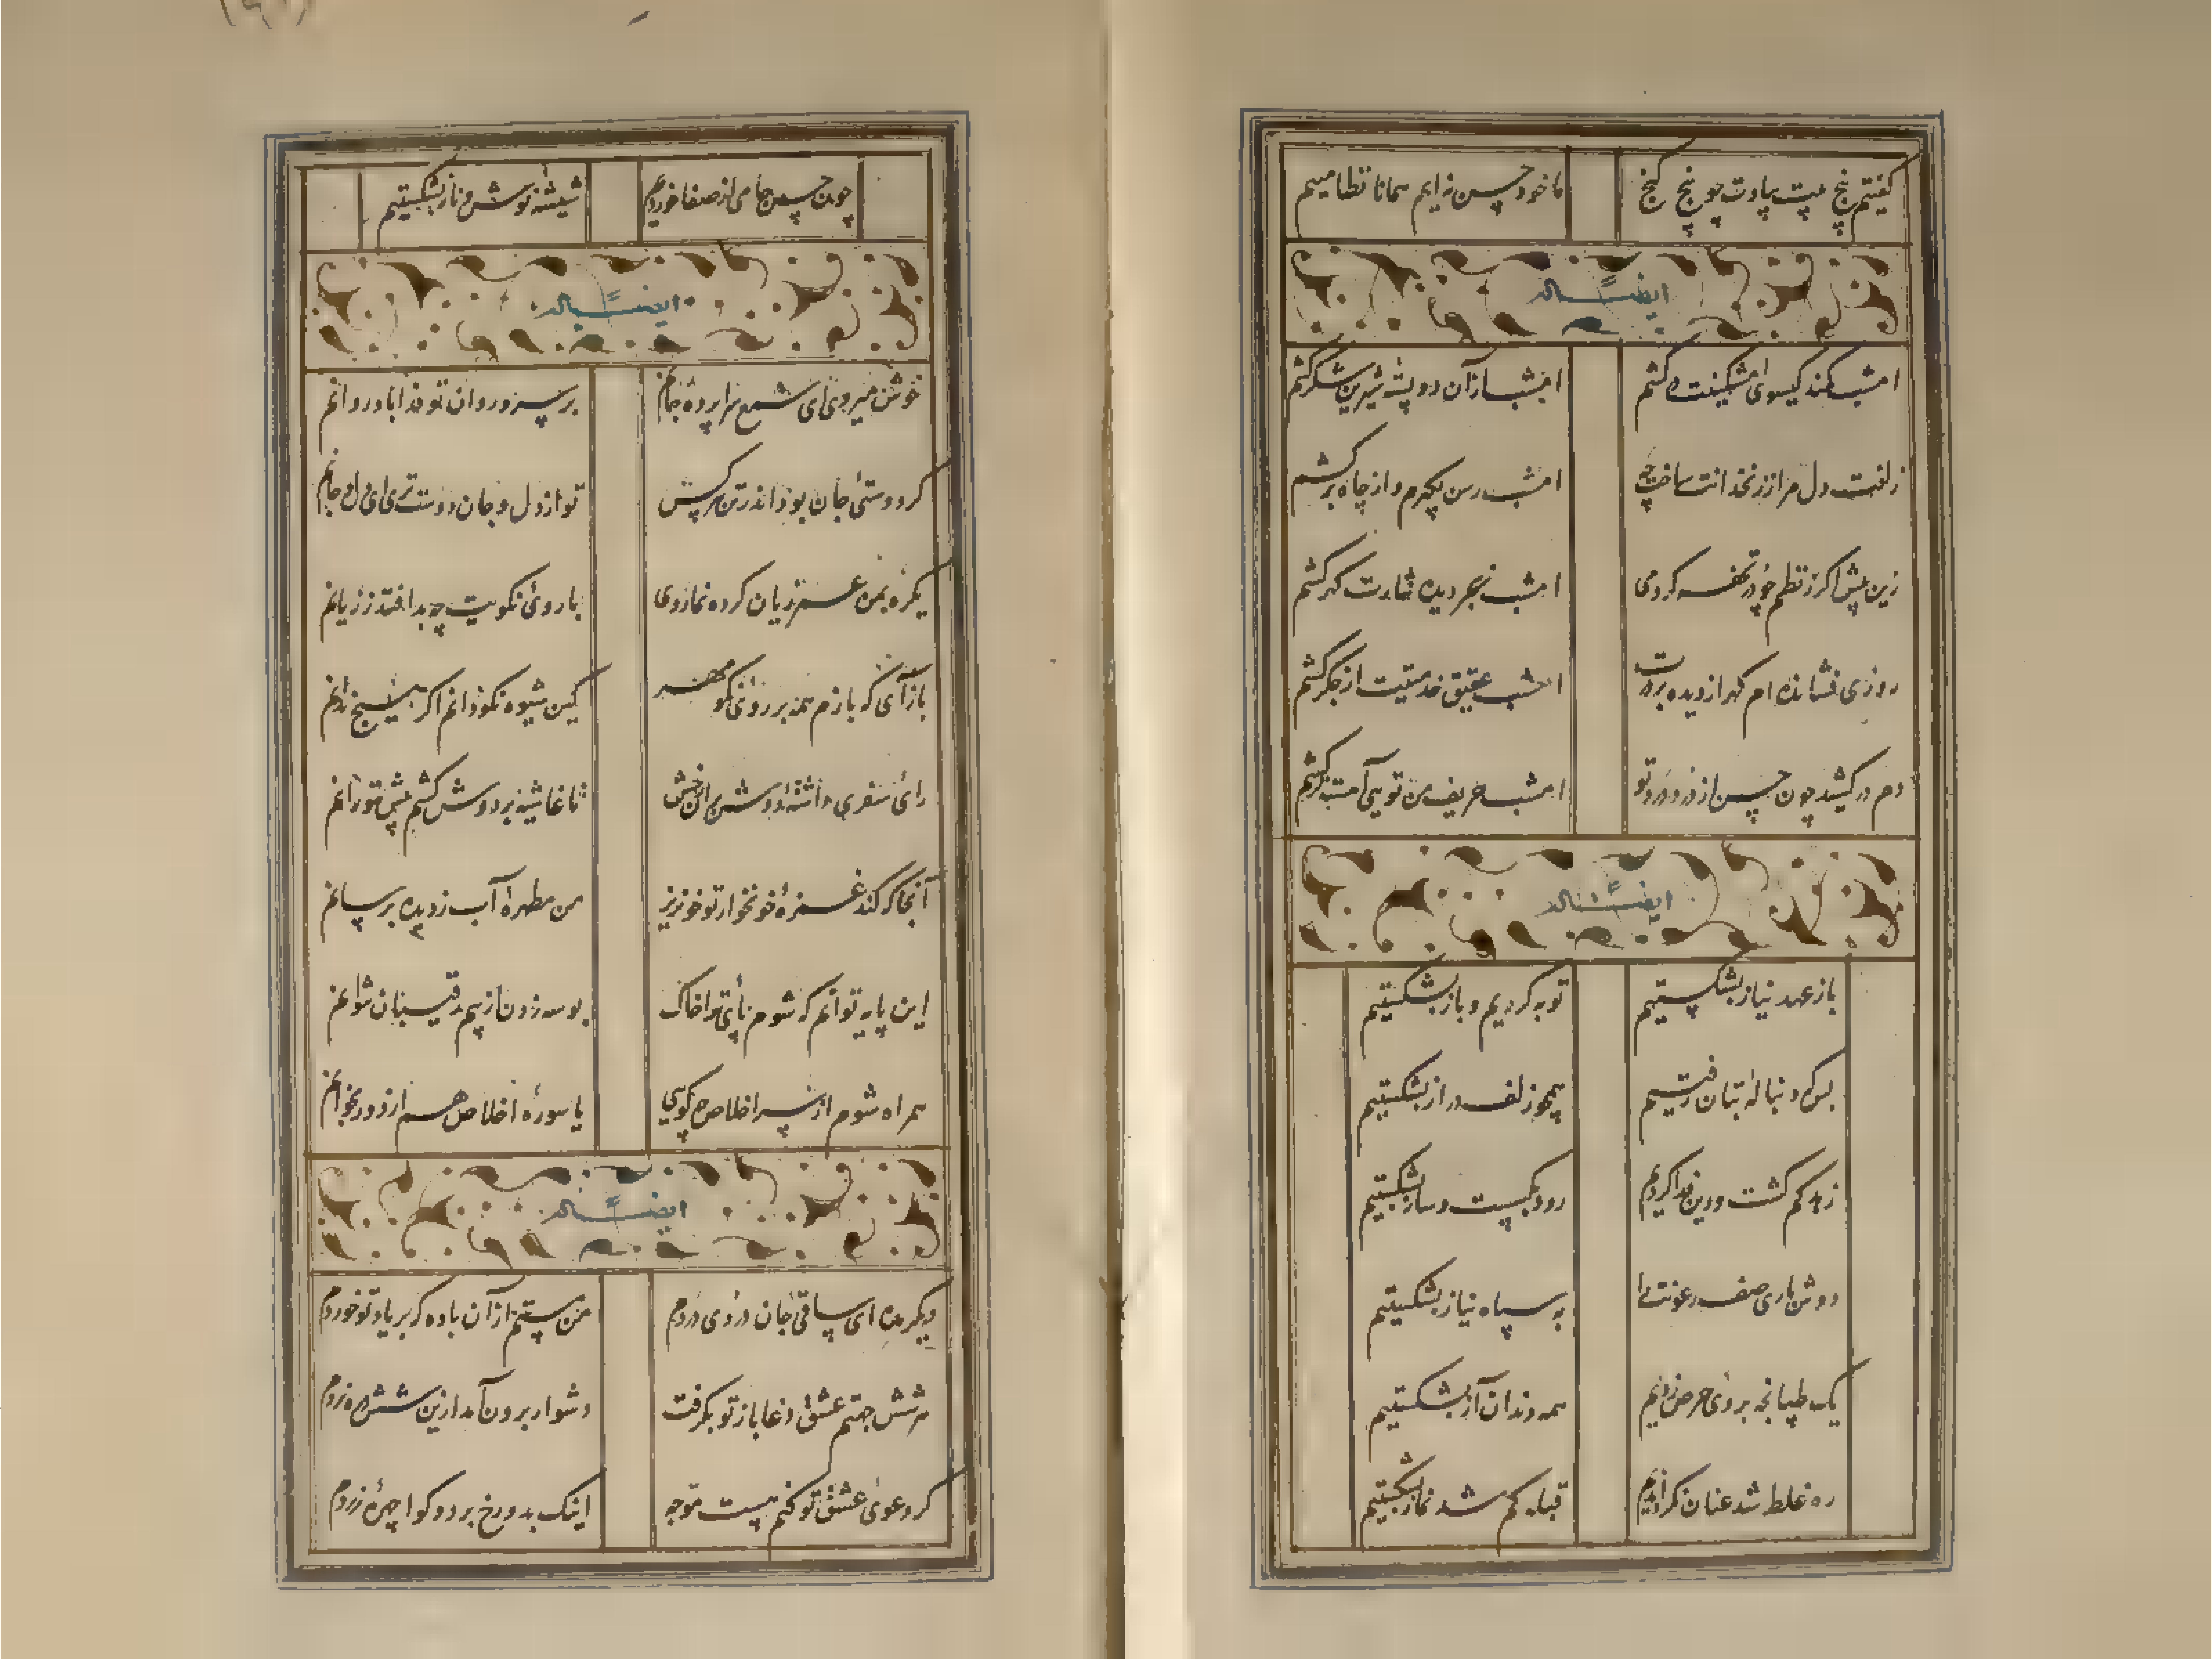 گفتیم پنج بیت بیادت چو پنج گنج ما خود حسن نه ایم همانا نظامییم
ایضاً له
امشب کمند گیسوی مشکینت در کشم امشب از آن دو پسته شیرین شکر کشم
زلفت دل مرا ز زنخدانت ساخت چه امشب رسن بگیرم و از چاه بر کشم
زین پیش اگر ز نظم خودت تحفه کردمی امشب ز بحر دیده نثارت گهر کشم
روزی فشانده ام گهر از دیده بر درت امشب عقیق خدمتیت از جگر کشم
دم در کشید چون حسن از درد درد تو امشب حریف من تویی آهسته تر کشم
ایضاً له
باز عهد نیاز بشکستیم توبه کردیم و باز بشکستیم
بس که دنباله بتان رفتیم همچو زلف دراز بشکستیم
زهد گم گشت و دین فدا کردیم رود بگسست و ساز بشکستیم
دوش باری صف رعونت را به سپاه نیاز بشکستیم
یک طپانچه بروی حرص زدیم همه دندان آز بشکستیم
ره غلط شد عنان نگردانیم قبله گم شد نماز بشکستیم
چون حسن جامی از صفا خوردیم شیشه نوش و ناز بشکستیم
ایضاً له
خوش میروی ای شمع سراپرده جانم بر سرو روان تو فدا باد روانم
گر دوستی جان بود اندر تن هر کس تو از دل و جان دوست تری ای دل و جانم
یکره بمن عمر زیان کرده نما روی با روی نکویت چه بد افتد ز زیانم
بازآی که بازم همه بر روی نکو مهر کین شیوه نکو دانم اگر هیچ ندانم
رای سفری داشته دوش بر آن رخش تا غاشیه بر دوش کشم پیش تو رانم
آنجا که کند غمزه خونخوار تو خونریز من مطهره آب ز دیده برسانم
این پایه توانم که شوم پای ترا خاک بوسه زدن از بیم رقیبان نتوانم
همراه شوم از سر اخلاص چه گویی یا سوره اخلاص هم از دور بخوانم
ایضاً له
دیگر مده ای ساقی جان دردی دردم من مستم از آن باده که بر یاد تو خوردم
هر شش جهتم عشق دغاباز تو بگرفت دشوار برون آمد ازین ششدره نردم
گر دعوی عشق تو کنم نیست موجه اینک بدو رخ بر دو گوا چهره زردم